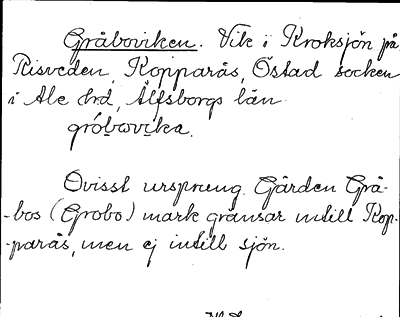 Gråboviken. Vik i Kroksjön på
Risveden, Kopparås, Östad socken
i Ale hrd, Älfsborgs län.
gró̀bωvi̱ka.
Ovisst ursprung. Gården Grå-
-bos (Grobo) mark gränsar intill Kop-
-parås, men ej intill sjön.